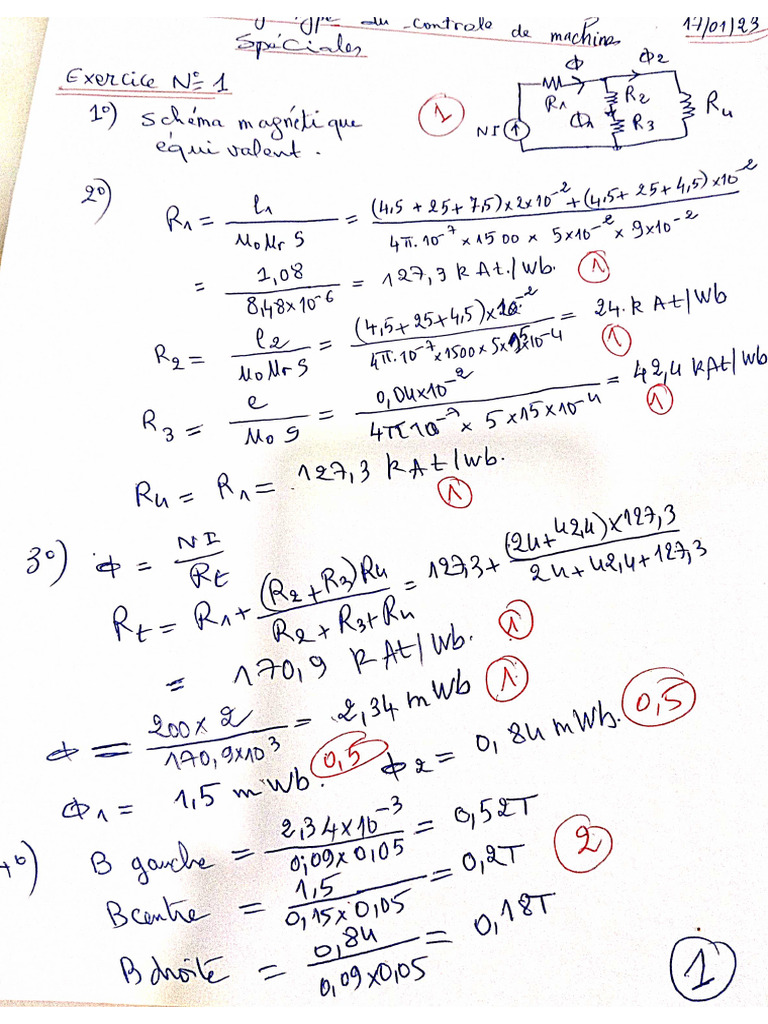 du controle de machines 17/01/23
Spéciales
Exercice N° 1
1°) schéma magnétique
équivalent.
1
NI R1 Φ Φ2 R2 R3 R4
2°)
R1 = l1 / μ0 μr S = (4,5 + 25 + 7,5) × 2 × 10^-2 + (4,5 + 25 + 4,5) × 10^-2 / 4π.10^-7 × 1500 × 5×10^-2 × 9×10^-2
= 1,08 / 8,48×10^-6 = 127,3 k At/Wb. 1
R2 = l2 / μ0 μr S = (4,5 + 25 + 4,5) × 10^-2 / 4π.10^-7 × 1500 × 5 × 15 × 10^-4 = 24 k At/Wb 1
R3 = e / μ0 S = 0,04×10^-2 / 4π 10^-7 × 5 × 15 × 10^-4 = 42,4 kAt/Wb 1
R4 = R1 = 127,3 k At/Wb. 1
3°) Φ = NI / Rt
Rt = R1 + (R2 + R3) R4 / R2 + R3 + R4 = 127,3 + (24 + 42,4) × 127,3 / 24 + 42,4 + 127,3
= 170,9 k At/Wb. 1
Φ = 200 × 2 / 170,9×10^3 = 2,34 mWb 1
Φ1 = 1,5 mWb. 0,5 Φ2 = 0,84 mWb. 0,5
4°) B gauche = 2,34×10^-3 / 0,09×0,05 = 0,52T 2
B centre = 1,5 / 0,15×0,05 = 0,2T
B droite = 0,84 / 0,09×0,05 = 0,18T
1